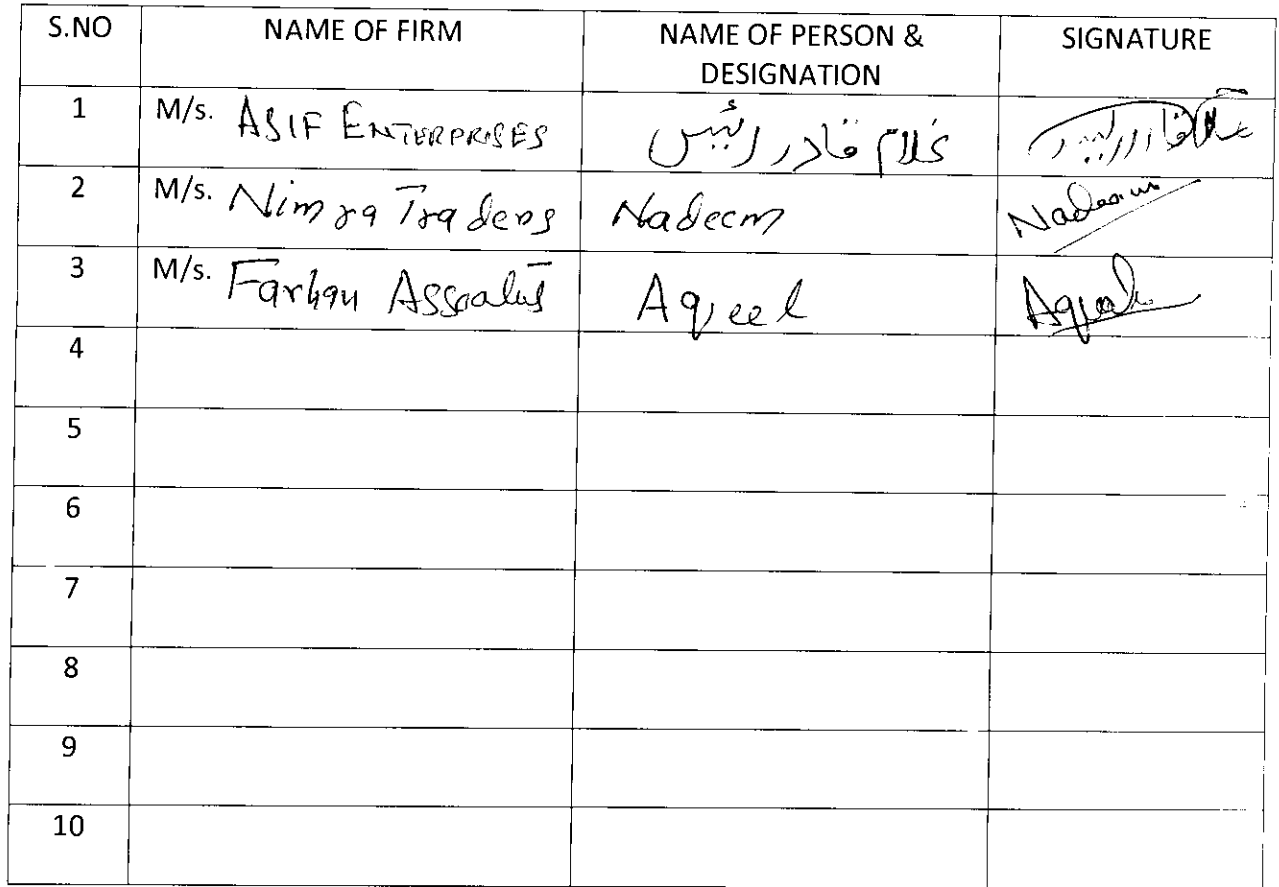 S.NO NAME OF FIRM NAME OF PERSON & SIGNATURE
DESIGNATION
1 M/s. ASIF ENTERPRISES غلام قادر رئیس
2 M/s. Nimra Traders Nadeem Nadeem
3 M/s. Farhan Aqeel Aqeel
4
5
6
7
8
9
10